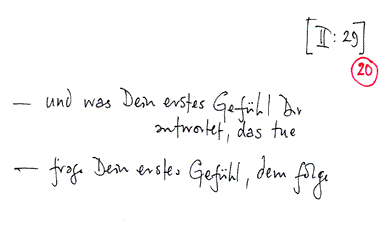 [II:29]
20
— und was Dein erstes Gefühl Dir
antwortet, das tue
— frage Dein erstes Gefühl, dem folge